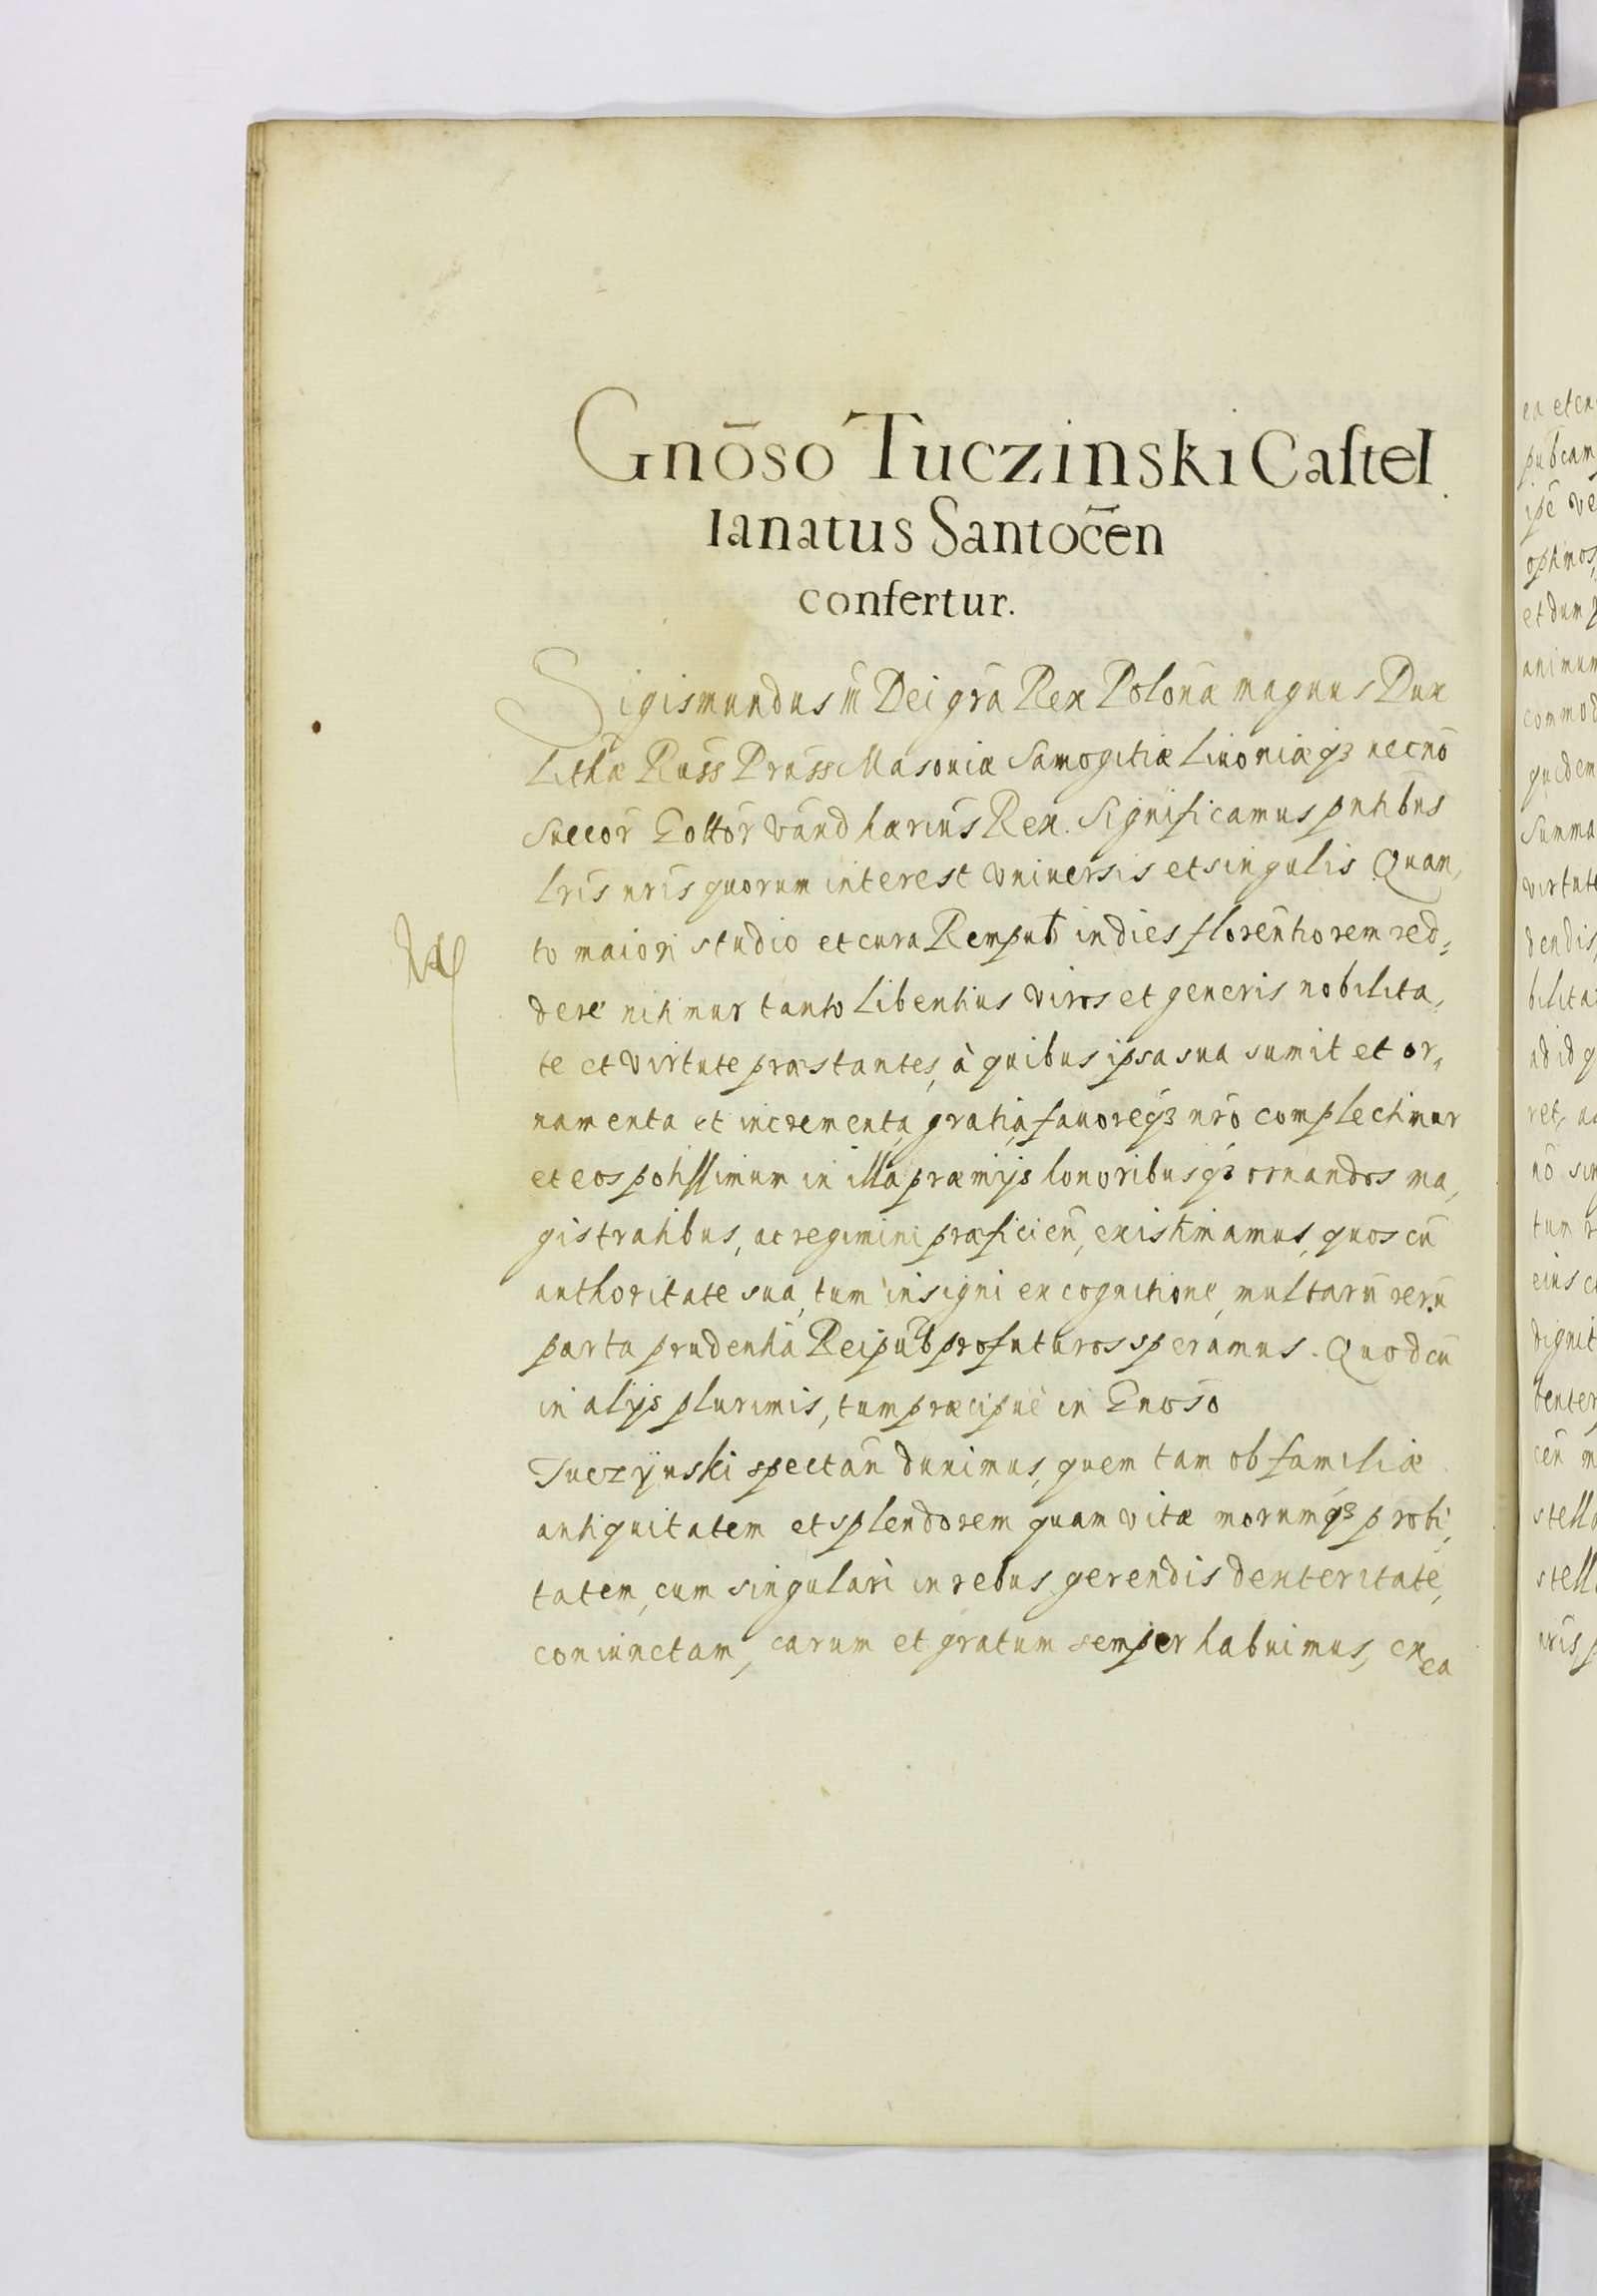 Gnōso Tuczinski Castel
lanatus Santoc̄en
confertur.
Sigismundus iii Dei grā Rex Polonā magnus Dux
Lithæ Russ Pruss Masoviæ Samogitiæ Livoniæqȝ necnō
Suecor̄ Gottor̄ Vand hærius Rex. Significamus pntibus
lris nris quorum interest vniversis et singulis Quan,
to maiori studio et cura Rempub in dies florentiorem red,
dere nitimur tanto libentius viros et generis nobilita,
te et virtute præstantes, à quibus ipsa sua sumit et or,
namenta et incrementa, gratia, favoreqȝ nrō complectimur
et eos potissimum in illa præmijs honoribusqȝ ornandos ma,
gistratibus, ac regimini præficien̄, existimamus, quos cū
authoritate sua, tum insigni ex cognitione multarū rerū
parta prudentia Reipub̄ profuturos speramus. Quod cū
in alijs plurimis, tum præcipuè in Gnōso
Tuczÿnski spectan̄ duximus, quem tam ob familiæ
antiquitatem et splendorem quam vitæ morumqȝ probi,
tatem, cum singulari in rebus gerendis dexteritate,
coniunctam, carum et gratum semper habuimus, ex
ea